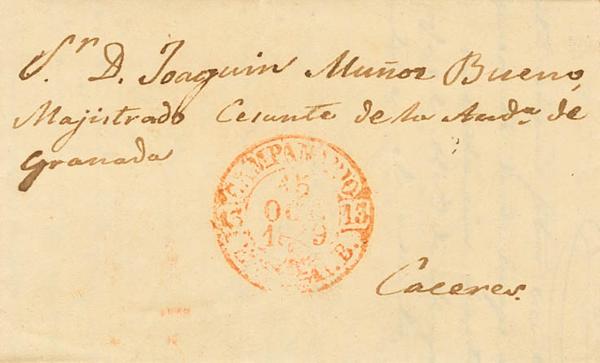 S.r D. Joaquin Muñoz Bueno,
Majistrado Cesante de la Aud.a de
Granada
CAMPANARIO
15
OCT
13
B.
Caceres.